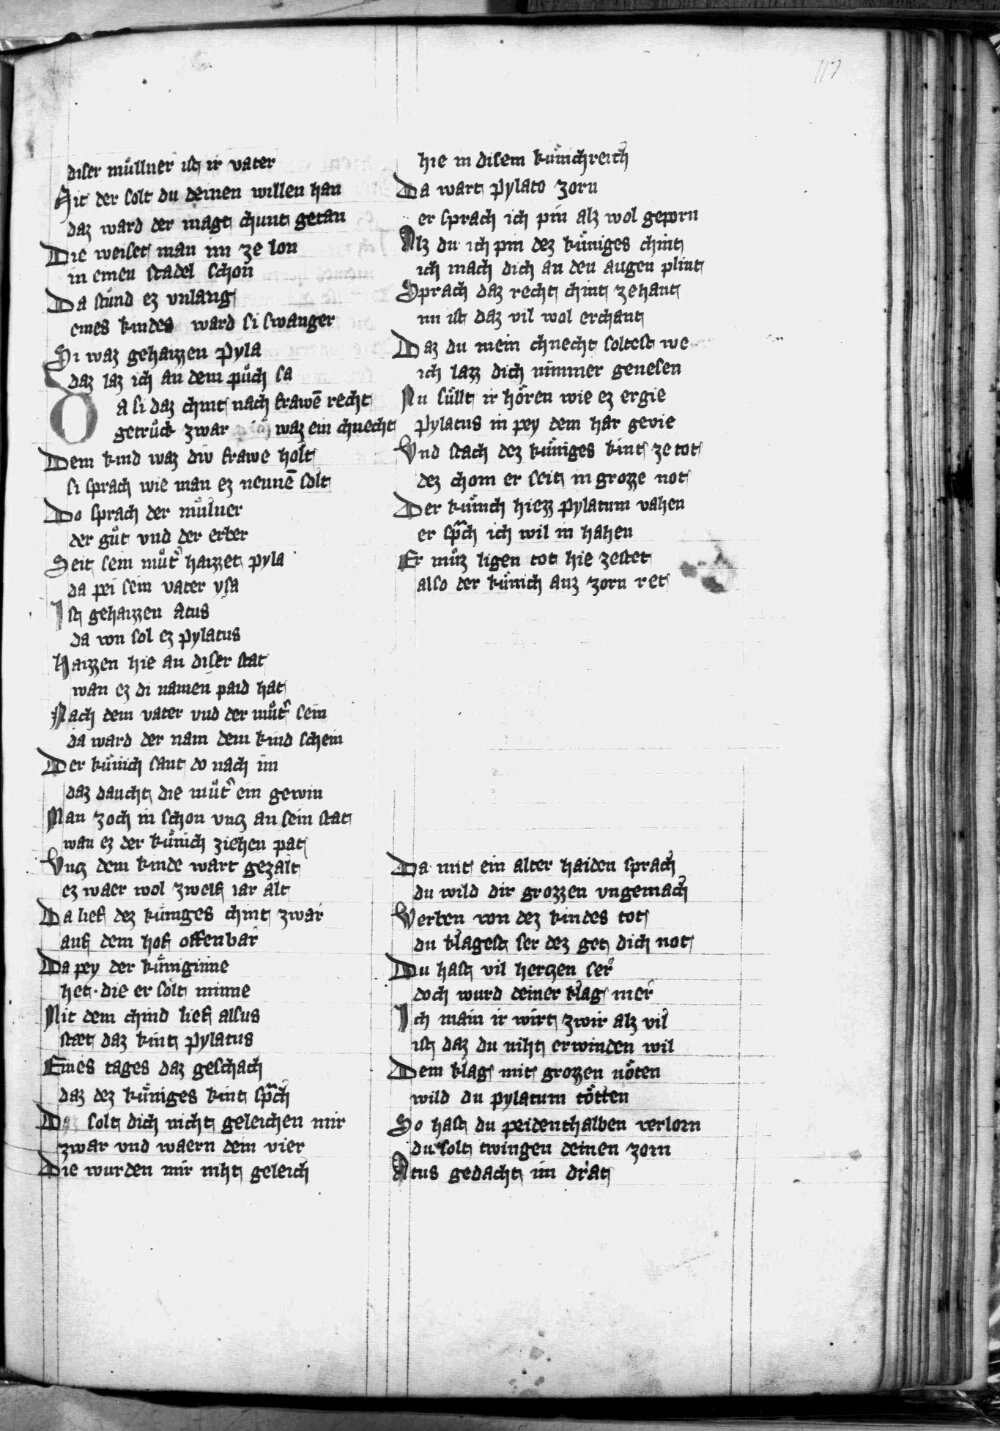 117
diser mullner ist ir vater
Mit der solt du deinen willen han
daz ward der magt chunt getan
Die weiset man im ze lon
in einen stadel schon
Da stůnd ez vnlang
eines kindes ward si swanger
Si waz gehaizzen Pyla
daz laz ich an dem půch sa
Da si daz chint nach frawē recht
getrůck zwar waz ein chnecht
Dem kind waz div frawe holt
si sprach wie man ez nennē solt
Do sprach der můlner
der gůt vnd der erber
Seit sein můt᷑ haizzet pyla
da pei sein vater ysa
Ist gehaizzen Atus
da von sol ez pylatus
Haizzen hie an diser stat
wan ez di namen paid hat
Nach dem vater vnd der můt᷑ sein
da ward der nam dem kind schein
Der kůnich sant do nach im
daz daucht die můt᷑ ein gewin
Man zoch in schon vntz an sein stat
wan ez der kůnich ziehen pat
Vntz dem kinde wart gezalt
ez waer wol zwelf iar alt
Da lief dez kůniges chint zwar
auf dem hof offenbar
Da pey der kůniginne
het die er solt minne
Mit dem chind lief alsus
staet daz kint pylatus
Eines tages daz geschach
daz dez kůniges kint sp᷑ch
Du solt dich nicht geleichen mir
zwar vnd waern dein vier
Die wurden mir niht geleich
hie in disem kůnichreich
Da wart pylato zorn
er sprach ich pin alz wol geporn
Alz du ich pin dez kůniges chint
ich mach dich an den augen plint
Sprach daz recht chint zehant
nu ist daz vil wol erchant
Daz du mein chnecht soltest we
ich lazz dich nimmer genesen
Nu sůllt ir hőren wie ez ergie
pylatus in pey dem har gevie
Vnd stach dez kůniges kint ze tot
dez chom er seit in grozze not
Der kůnich hiezz pylatum vahen
er sp᷑ch ich wil in hahen
Er můz ligen tot hie zestet
also der kůnich auz zorn ret
Da mit ein alter haiden sprach
du wild dir grozzen vngemach
Werben von dez kindes tot
du klagest ser dez get dich not
Du hast vil hertzen ser
doch wurd deiner klag mer
Ich main ir wirt zwir alz vil
ist daz du niht erwinden wil
Dem klag mit grozzen nőten
wild du pylatum tőtten
So hast du peidenthalben verlorn
du solt twingen deinen zorn
Atus gedacht im drat